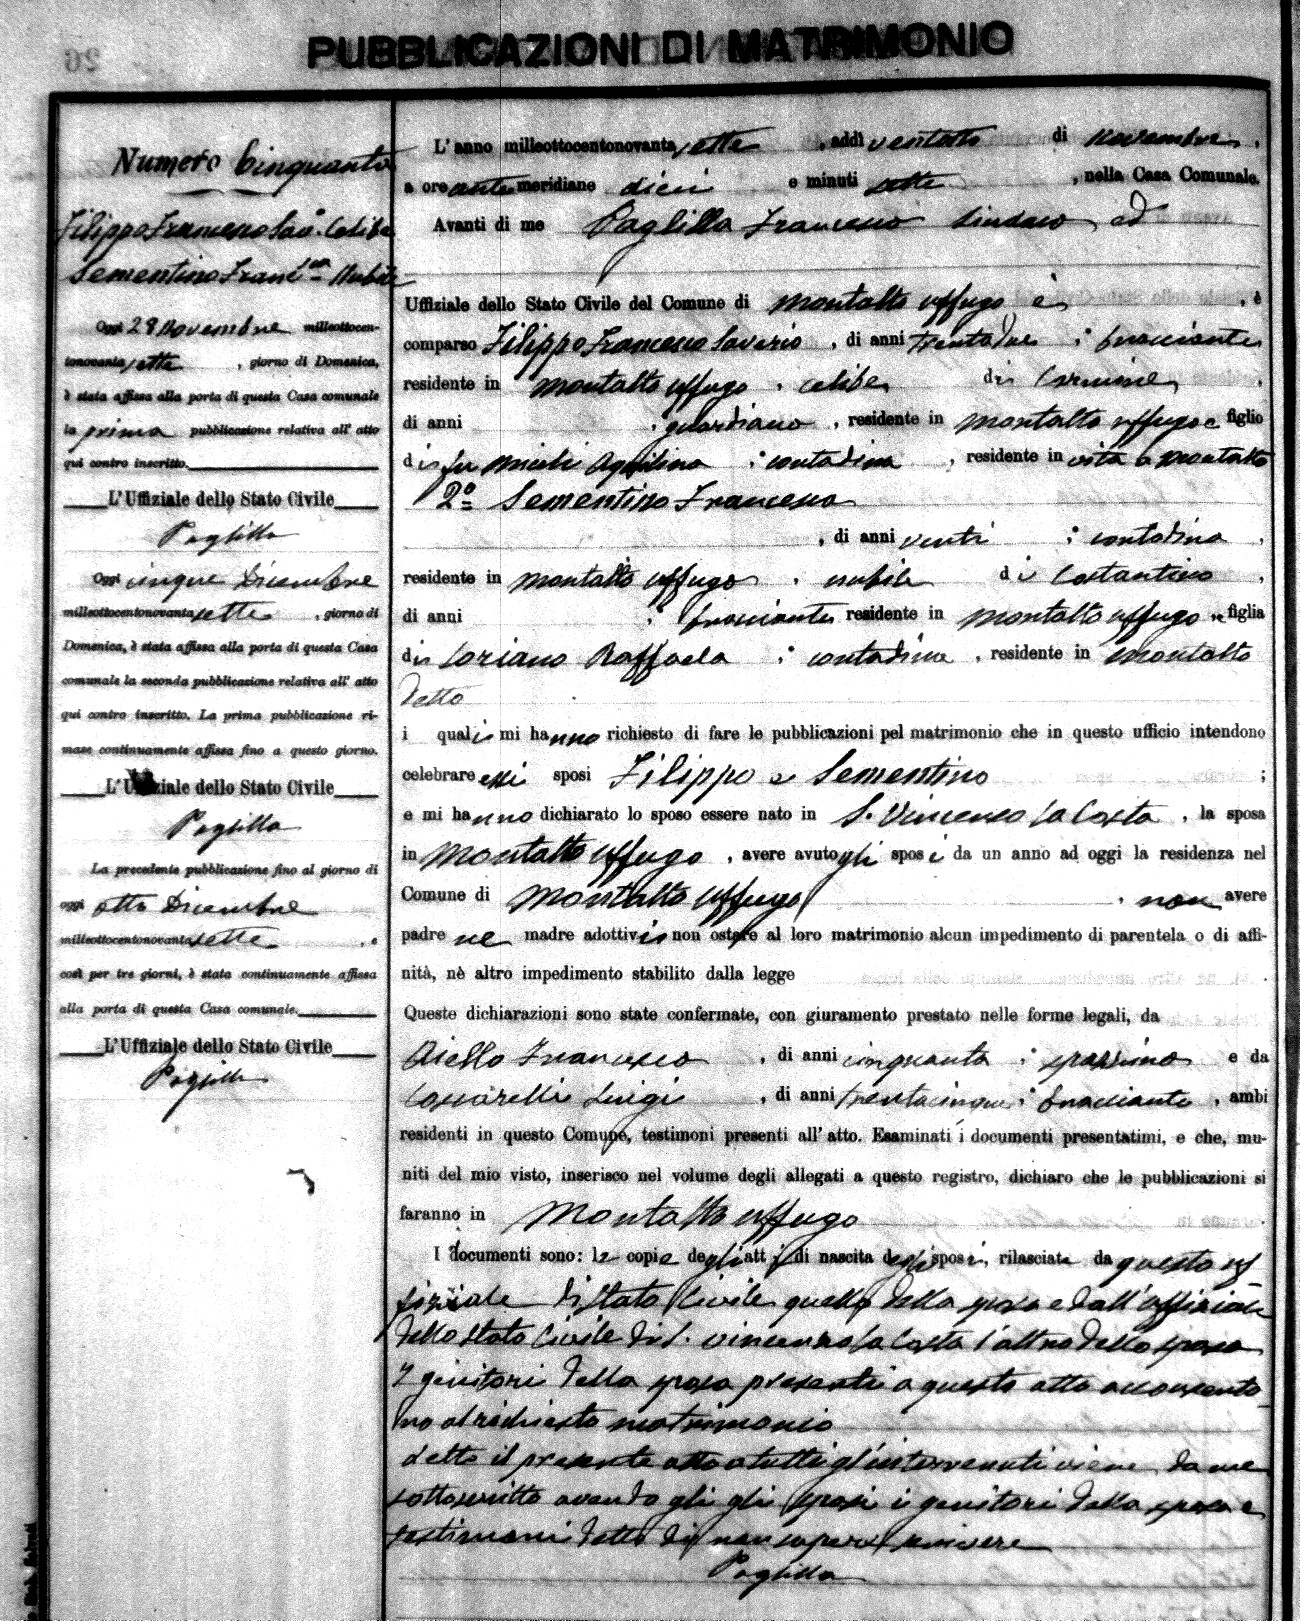 PUBBLICAZIONI DI MATRIMONIO
26
Numero Cinquanta
Filippo Francesco Sav.o Celibe
Sementino Franc.sca Nubile
Oggi 28 Novembre milleottocen-
tonovanta sette, giorno di Domenica,
è stata affissa alla porta di questa Casa comunale
la prima pubblicazione relativa all'atto
qui contro inscritto.
L'Uffiziale dello Stato Civile
Paglilla
Oggi cinque Dicembre
milleottocentonovanta sette, giorno di
Domenica, è stata affissa alla porta di questa Casa
comunale la seconda pubblicazione relativa all'atto
qui contro inscritto. La prima pubblicazione ri-
mase continuamente affissa fino a questo giorno.
L'Uffiziale dello Stato Civile
Paglilla
La precedente pubblicazione fino al giorno di
oggi otto Dicembre
milleottocentonovanta sette, e
così per tre giorni, è stata continuamente affissa
alla porta di questa Casa comunale.
L'Uffiziale dello Stato Civile
Paglilla
L'anno milleottocentonovanta sette, addì ventotto di Novembre,
a ore ante meridiane dieci e minuti sette, nella Casa Comunale.
Avanti di me Paglilla Francesco Sindaco ed
Uffiziale dello Stato Civile del Comune di Montalto Uffugo è, è
comparso Filippo Francesco Saverio, di anni trentadue, bracciante
residente in Montalto Uffugo, celibe di Carmine,
di anni, guardiano, residente in Montalto Uffugo e figlio
di fu Aquilina, contadina, residente in vita a Montalto
2° Sementino Francesca
, di anni venti, contadina,
residente in Montalto Uffugo, nubile di Costantino,
di anni, bracciante residente in Montalto Uffugo e figlia
di Loriano Raffaela, contadina, residente in Montalto
detto
i quali mi hanno richiesto di fare le pubblicazioni pel matrimonio che in questo ufficio intendono
celebrare essi sposi Filippo e Sementino;
e mi hanno dichiarato lo sposo essere nato in S. Vincenzo la Costa, la sposa
in Montalto Uffugo, avere avuto gli sposi da un anno ad oggi la residenza nel
Comune di Montalto Uffugo, non avere
padre ne madre adottivi non ostare al loro matrimonio alcun impedimento di parentela o di affi-
nità, nè altro impedimento stabilito dalla legge
Queste dichiarazioni sono state confermate, con giuramento prestato nelle forme legali, da
Aiello Francesco, di anni cinquanta, spazzino e da
Coscarelli Luigi, di anni trentacinque, bracciante, ambi
residenti in questo Comune, testimoni presenti all'atto. Esaminati i documenti presentatimi, e che, mu-
niti del mio visto, inserisco nel volume degli allegati a questo registro, dichiaro che le pubblicazioni si
faranno in Montalto Uffugo
I documenti sono: le copie degli atti di nascita degli sposi, rilasciate da questo uf
fiziale di Stato Civile quello della sposa e dall'uffiziale
dello Stato Civile di S. Vincenzo la Costa l'altro dello sposo
I genitori della sposa presenti a questo atto acconsento
no al richiesto matrimonio
Letto il presente atto a tutti gl'intervenuti viene da me
sottoscritto avendo gli gli sposi i genitori della sposa e
testimoni detto di non sapere scrivere
Paglilla